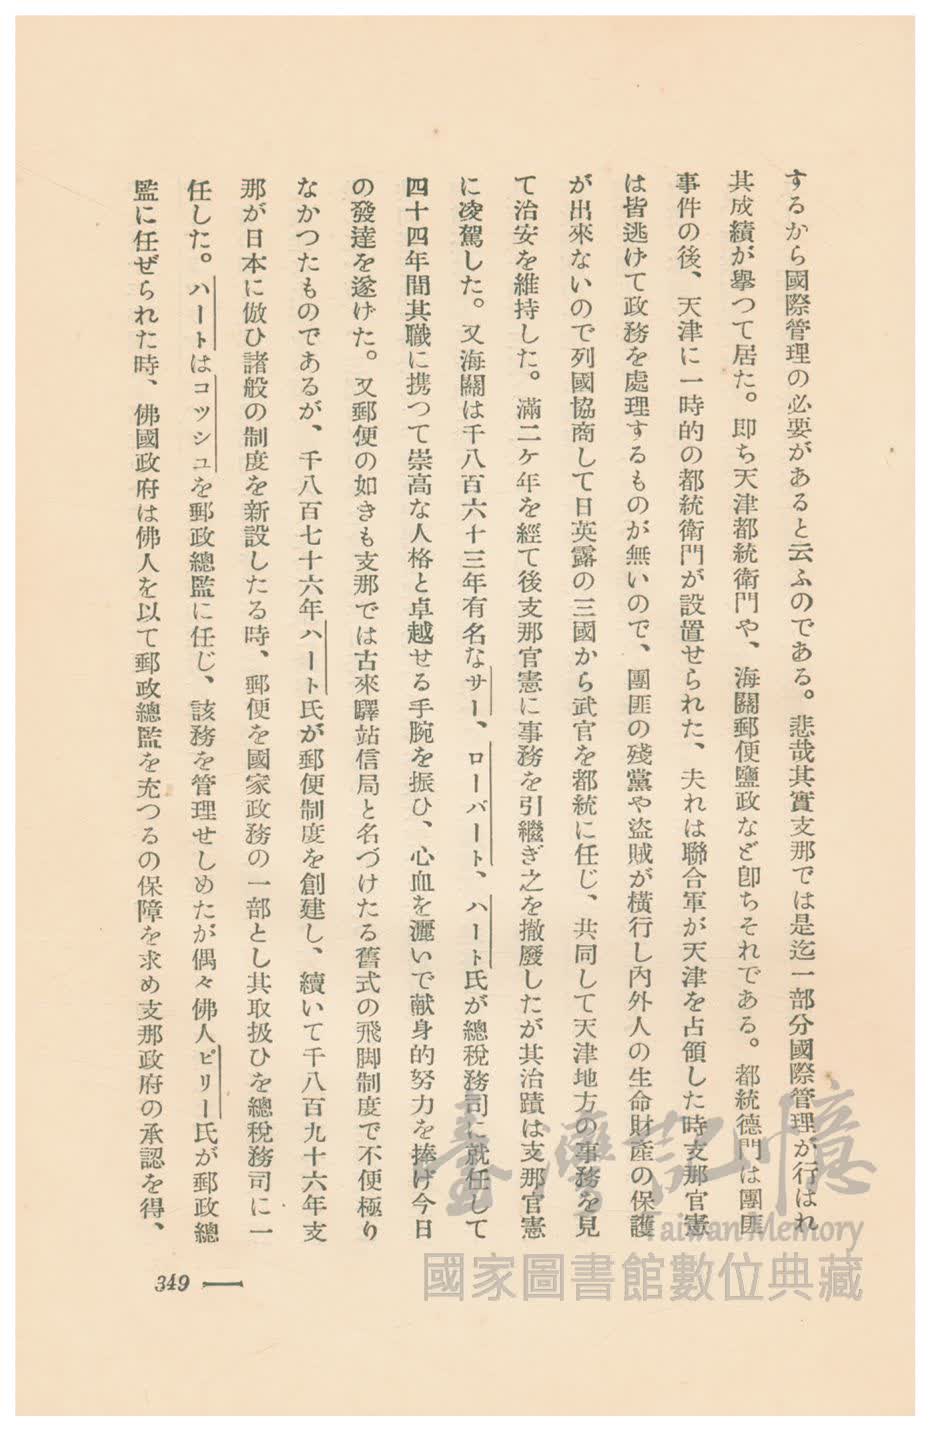 するから國際管理の必要があると云ふのである。悲哉其實支那では是迄一部分國際管理が行はれ
其成績が擧つて居た。即ち天津都統衛門や、海關郵便鹽政など卽ちそれである。都統德門は團匪
事件の後、天津に一時的の都統衛門が設置せられた、夫れは聯合軍が天津を占領した時支那官憲
は皆逃げて政務を處理するものが無いので、團匪の殘黨や盜賊が橫行し內外人の生命財產の保護
が出來ないので列國協商して日英露の三國から武官を都統に任じ、共同して天津地方の事務を見
て治安を維持した。滿二ケ年を經て後支那官憲に事務を引繼ぎ之を撤廢したが其治蹟は支那官憲
に凌駕した。又海關は千八百六十三年有名なサー、ローバート、ハート氏が總稅務司に就任して
四十四年間其職に携つて崇高な人格と卓越せる手腕を振ひ、心血を灑いで献身的努力を捧げ今日
の發達を遂げた。又郵便の如きも支那では古來驛站信局と名づけたる舊式の飛脚制度で不便極り
なかつたものであるが、千八百七十六年ハート氏が郵便制度を創建し、續いて千八百九十六年支
那が日本に倣ひ諸般の制度を新設したる時、郵便を國家政務の一部とし其取扱ひを總稅務司に一
任した。ハートはコツシユを郵政總監に任じ、該務を管理せしめたが偶々佛人ピリー氏が郵政總
監に任ぜられた時、佛國政府は佛人を以て郵政總監を充つるの保障を求め支那政府の承認を得、
349
臺灣記憶
Taiwan Memory
國家圖書館數位典藏